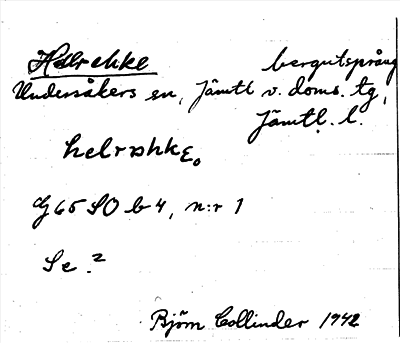 Hælrehke bergutsprång
Undersåkers sn, Jämtl v. doms. tg,
Jämtl. l.
helrəhkε。
G65 SO b 4, n:r 1
Se. 2
Björn Collinder 1942